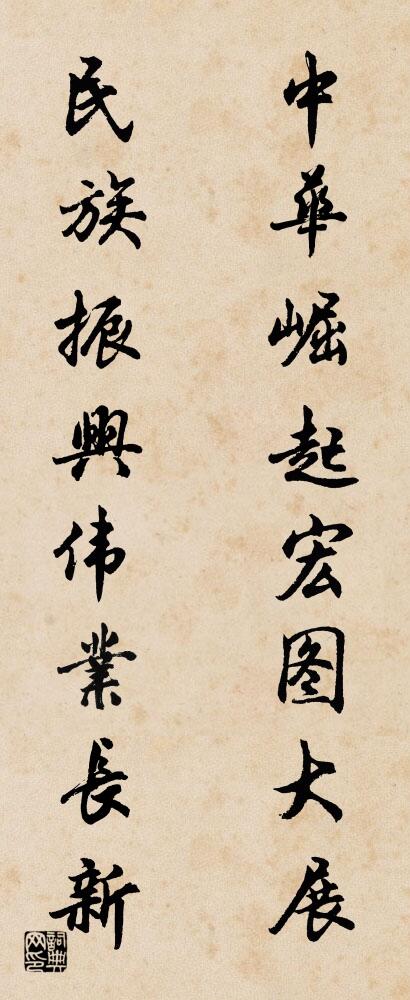 中華崛起宏图大展
民族振興伟業長新
詞典网印